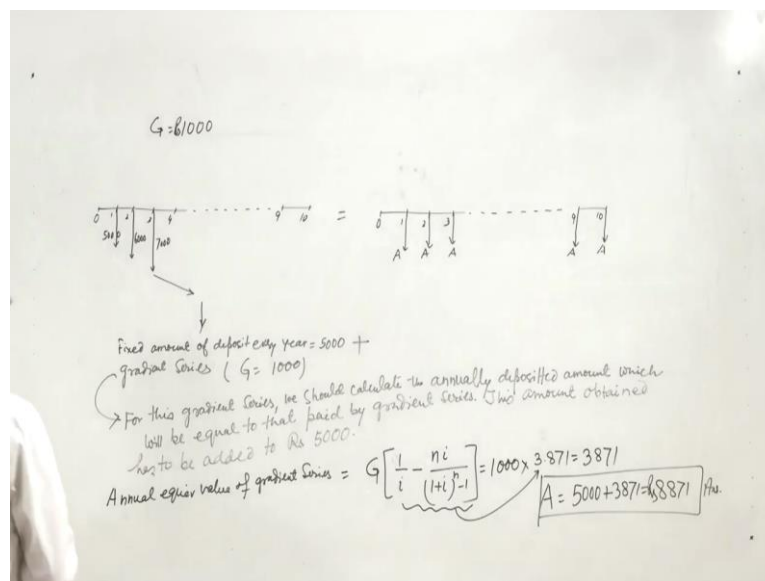 G=₨1000
0 1 2 3 4 - - - - - - - - 9 10 = 0 1 2 3 - - - - - - - - 9 10
5000 6000 7000 A A A A A
Fixed amount of deposit every year = 5000 +
gradient Series ( G= 1000)
For this gradient Series, we should calculate the annually depositted amount which
will be equal to that paid by gradient series. This amount obtained
has to be added to Rs 5000.
Annual equiv value of gradient Series = G[1/i - ni/((1+i)^n-1)] = 1000 x 3.871 = 3871
A = 5000+3871=Rs8871 Ans.